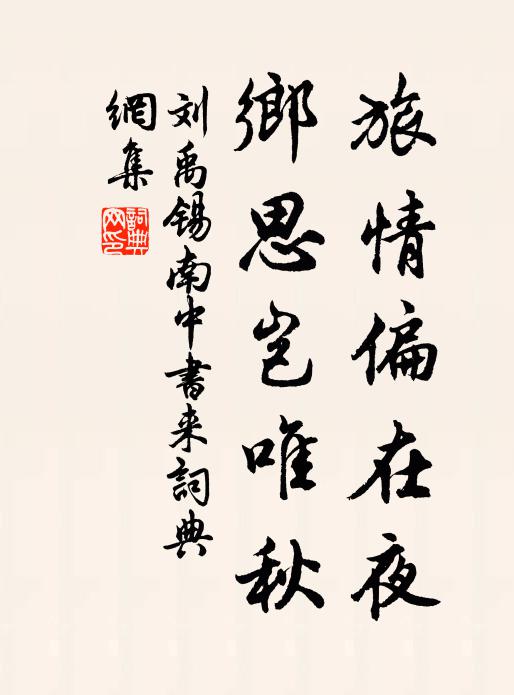 旅情偏在夜
鄉思豈唯秋
刘禹锡南中書来詞典
網集
詞典网印